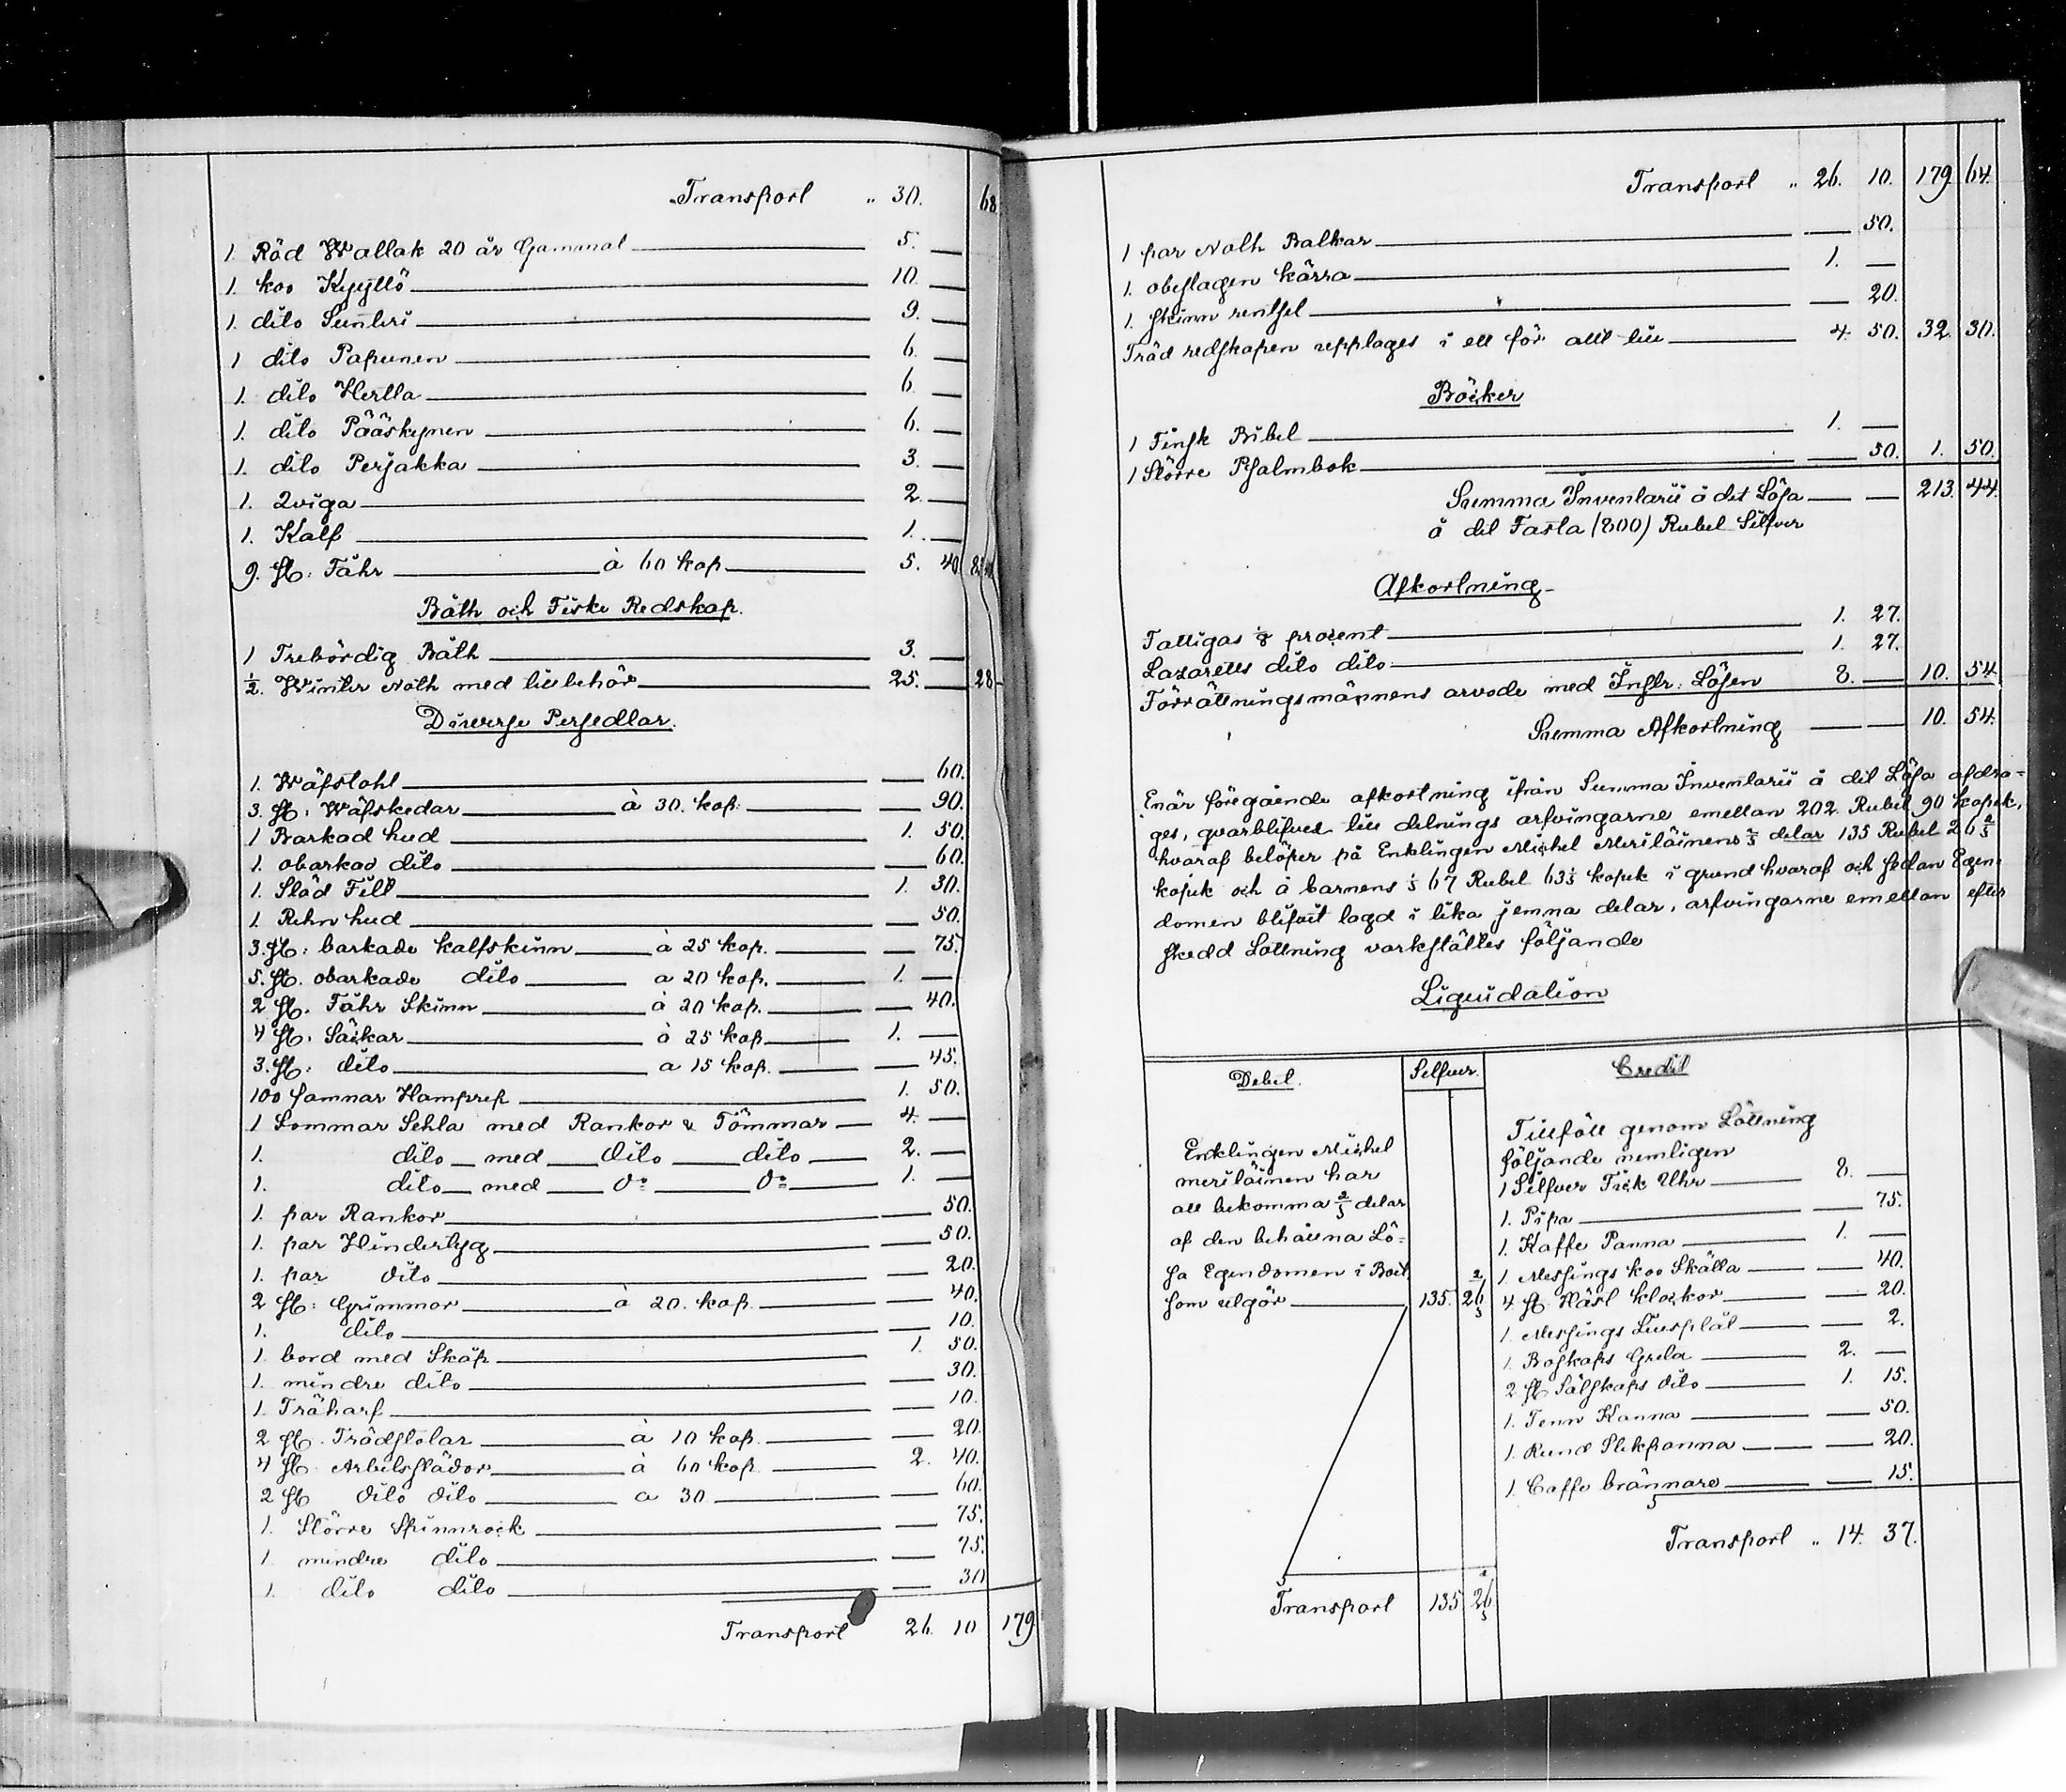 Transport " 30. 68
1. Röd Wallak 20 år Gammal 5. —
1. koo Kyyllö 10. —
1. dito Sunteri 9. —
1 dito Papunen 6. —
1. dito Hertta 6. —
1. dito Pääskynen 6. —
1. dito Perjakka 3. —
1. Qviga 2. —
1. Kalf 1. —
9. st: Fåhr à 60 kop 5. 40
Båth och Fiske Redskap.
1 Trebördig Båth 3. —
½. Winter Noth med tillbehör 25. — 28 -
Diverse Persedlar.
1. Wäfstohl — 60.
3. st: Wäfskedar à 30. kop: — 90.
1 Barkad hud 1. 50.
1. obarkad dito — 60.
1. Släd Fäll 1. 30.
1. Rehn hud — 50.
3. st: barkade kalfskinn à 25 kop. — 75.
5. st. obarkade dito a 20 kop. 1. —
2 st. Fåhr Skinn à 20 kop. — 40.
4 st: Säckar à 25 kop 1. —
3. st: dito a 15 kop. — 45.
100 famnar Hamprep 1. 50.
1 Sommar Sehla med Rankor & Tömmar 4. —
1. dito med dito dito 2. —
1. dito med do do 1. —
1. par Rankor — 50.
1. par Hindertyg — 50.
1. par dito — 20.
2 st: Grimmor à 20. kop. — 40.
1. dito — 10.
1. bord med Skåp 1. 50.
1. mindre dito — 30.
1. Träharf — 10.
2 st. Trädstolar à 10 kop. — 20.
4 st. Arbetsslädor à 60 kop. 2. 40.
2 st dito dito a 30. — 60.
1. Större Spinnrock — 75.
1. mindre dito — 75.
1. dito dito — 30
Transport 26. 10 179.
Transport " 26. 10. 179 64.
1 par Noth Balkar — 50.
1. obeslagen kärra 1. —
1. skinn rentsel — 20.
Träd redskapen upptages i ett för allt till 4. 50. 32. 30.
Böcker
1 Finsk Bibel 1. —
1 Större Psalmbok — 50. 1. 50.
Summa Inventarii å det Lösa — — 213. 44.
å det Fasta (800) Rubel Silfver
Afkortning
Fattigas ⅛ procent 1. 27.
Lazaretts dito dito 1. 27.
Förrättningsmännens arvode med Instr: Lösen 8. — 10. 54.
Summa Afkortning — — 10. 54.
Enär föregående afkortning ifrån Summa Inventarii å det Lösa afdra-
ges, qvarblifves till delnings arfvingarne emellan 202. Rubel 90 kopek,
hvaraf belöper på Enklingen Michel Meriläinens ⅔ delar 135 Rubel 26⅔
kopek och å barnens ⅓ 67 Rubel 63⅓ kopek i grund hvaraf och sedan Egen-
domen blifvit lagd i lika jemna delar, arfvingarne emellan efter
skedd Lottning varkställtes följande
Liquidation
Debet. Selfver. Credit
Enklingen Michel
meriläinen har
att bekomma ⅔ delar
af den behållna Lö-
sa Egendomen i Boet
som utgör 135. 26⅔
Transport 135 26⅔
Tillföll genom Lottning
följande nemligen
1 Silfver Fick Uhr 8. —
1. Pipa — 75.
1. Kaffe Panna 1. —
1 Messings koo Skälla — 40.
4 st. Häst klockor — 20.
1. Messings Ljusplåt — 2.
1. Boskaps Gryta 2. —
2 st Sälskaps dito 1. 15.
1. Tenn Kanna — 50.
1. Rund Stekpanna — 20.
1. Caffe brännare — 15.
Transport " 14. 37.